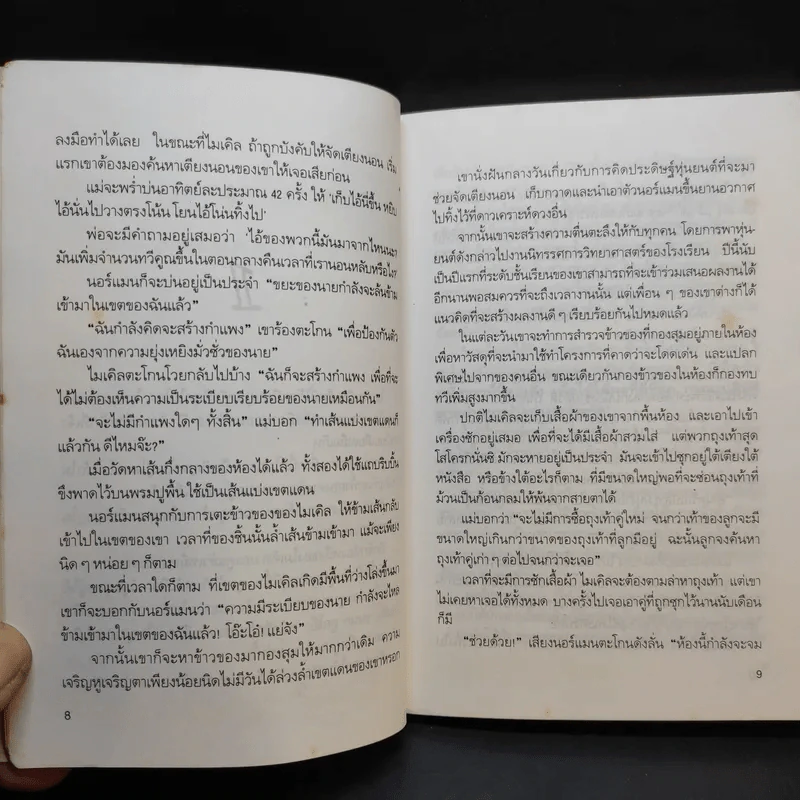 ลงมือทำได้เลย ในขณะที่ไมเคิล ถ้าถูกบังคับให้จัดเตียงนอน เริ่ม
แรกเขาต้องมองค้นหาเตียงนอนของเขาให้เจอเสียก่อน
แม่จะพร่ำบ่นอาทิตย์ละประมาณ 42 ครั้ง ให้ ‘เก็บไอ้นี่ขึ้น หยิบ
ไอ้นั่นไปวางตรงโน้น โยนไอ้โน่นทิ้งไป’
พ่อจะมีคำถามอยู่เสมอว่า ‘ไอ้ของพวกนี้มันมาจากไหนนะ?
มันเพิ่มจำนวนทวีคูณขึ้นในตอนกลางคืนเวลาที่เรานอนหลับหรือไง?
นอร์แมนก็จะบ่นอยู่เป็นประจำ “ขยะของนายกำลังจะล้นข้าม
เข้ามาในเขตของฉันแล้ว”
“ฉันกำลังคิดจะสร้างกำแพง” เขาร้องตะโกน “เพื่อป้องกันตัว
ฉันเองจากความยุ่งเหยิงมั่วซั่วของนาย”
ไมเคิลตะโกนโวยกลับไปบ้าง “ฉันก็จะสร้างกำแพง เพื่อที่จะ
ได้ไม่ต้องเห็นความเป็นระเบียบเรียบร้อยของนายเหมือนกัน”
“จะไม่มีกำแพงใดๆ ทั้งสิ้น” แม่บอก “ทำเส้นแบ่งเขตแดนก็
แล้วกัน ดีไหมจ๊ะ?”
เมื่อวัดหาเส้นกึ่งกลางของห้องได้แล้ว ทั้งสองได้ใช้แถบริบบิ้น
ขึงพาดไว้บนพรมปูพื้น ใช้เป็นเส้นแบ่งเขตแดน
นอร์แมนสนุกกับการเตะข้าวของของไมเคิล ให้ข้ามเส้นกลับ
เข้าไปในเขตของเขา เวลาที่ของชิ้นนั้นล้ำเส้นข้ามเข้ามา แม้จะเพียง
นิด ๆ หน่อย ๆ ก็ตาม
ขณะที่เวลาใดก็ตาม ที่เขตของไมเคิลเกิดมีพื้นที่ว่างโล่งขึ้นมา
เขาก็จะบอกกับนอร์แมนว่า “ความมีระเบียบของนาย กำลังจะไหล
ข้ามเข้ามาในเขตของฉันแล้ว! โอ๊ะโอ๋! แย่จัง”
จากนั้นเขาก็จะหาข้าวของมากองสุมให้มากกว่าเดิม ความ
เจริญหูเจริญตาเพียงน้อยนิดไม่มีวันได้ล่วงล้ำเขตแดนของเขาหรอก
8
เขานั่งฝันกลางวันเกี่ยวกับการคิดประดิษฐ์หุ่นยนต์ที่จะมา
ช่วยจัดเตียงนอน เก็บกวาดและนำเอาตัวนอร์แมนขึ้นยานอวกาศ
ไปทิ้งไว้ที่ดาวเคราะห์ดวงอื่น
จากนั้นเขาจะสร้างความตื่นตะลึงให้กับทุกคน โดยการพาหุ่น-
ยนต์ดังกล่าวไปงานนิทรรศการวิทยาศาสตร์ของโรงเรียน ปีนี้นับ
เป็นปีแรกที่ระดับชั้นเรียนของเขาสามารถที่จะเข้าร่วมเสนอผลงานได้
อีกนานพอสมควรที่จะถึงเวลางานนั้น แต่เพื่อน ๆ ของเขาต่างก็ได้
แนวคิดที่จะสร้างผลงานดี ๆ เรียบร้อยกันไปหมดแล้ว
ในแต่ละวันเขาจะทำการสำรวจข้าวของที่กองสุมอยู่ภายในห้อง
เพื่อหาวัสดุที่จะนำมาใช้ทำโครงการที่คาดว่าจะโดดเด่น และแปลก
พิเศษไปจากของคนอื่น ขณะเดียวกันกองข้าวของในห้องก็กองทบ
ทวีเพิ่มสูงมากขึ้น
ปกติไมเคิลจะเก็บเสื้อผ้าของเขาจากพื้นห้อง และเอาไปเข้า
เครื่องซักอยู่เสมอ เพื่อที่จะได้มีเสื้อผ้าสวมใส่ แต่พวกถุงเท้าสุด
โสโครกนั่นซิ มักจะหายอยู่เป็นประจำ มันจะเข้าไปซุกอยู่ใต้เตียงใต้
หนังสือ หรือข้างใต้อะไรก็ตาม ที่มีขนาดใหญ่พอที่จะซ่อนถุงเท้าที่
ม้วนเป็นก้อนกลมให้พ้นจากสายตาได้
แม่บอกว่า “จะไม่มีการซื้อถุงเท้าคู่ใหม่ จนกว่าเท้าของลูกจะมี
ขนาดใหญ่เกินกว่าขนาดของถุงเท้าที่ลูกมีอยู่ ฉะนั้นลูกจงค้นหา
ถุงเท้าคู่เก่า ๆ ต่อไปจนกว่าจะเจอ”
เวลาที่จะมีการซักเสื้อผ้า ไมเคิลจะต้องตามล่าหาถุงเท้า แต่เขา
ไม่เคยหาเจอได้ทั้งหมด บางครั้งไปเจอเอาคู่ที่ถูกซุกไว้นานนับเดือน
ก็มี
“ช่วยด้วย!” เสียงนอร์แมนตะโกนดังลั่น “ห้องนี้กำลังจะจม
9